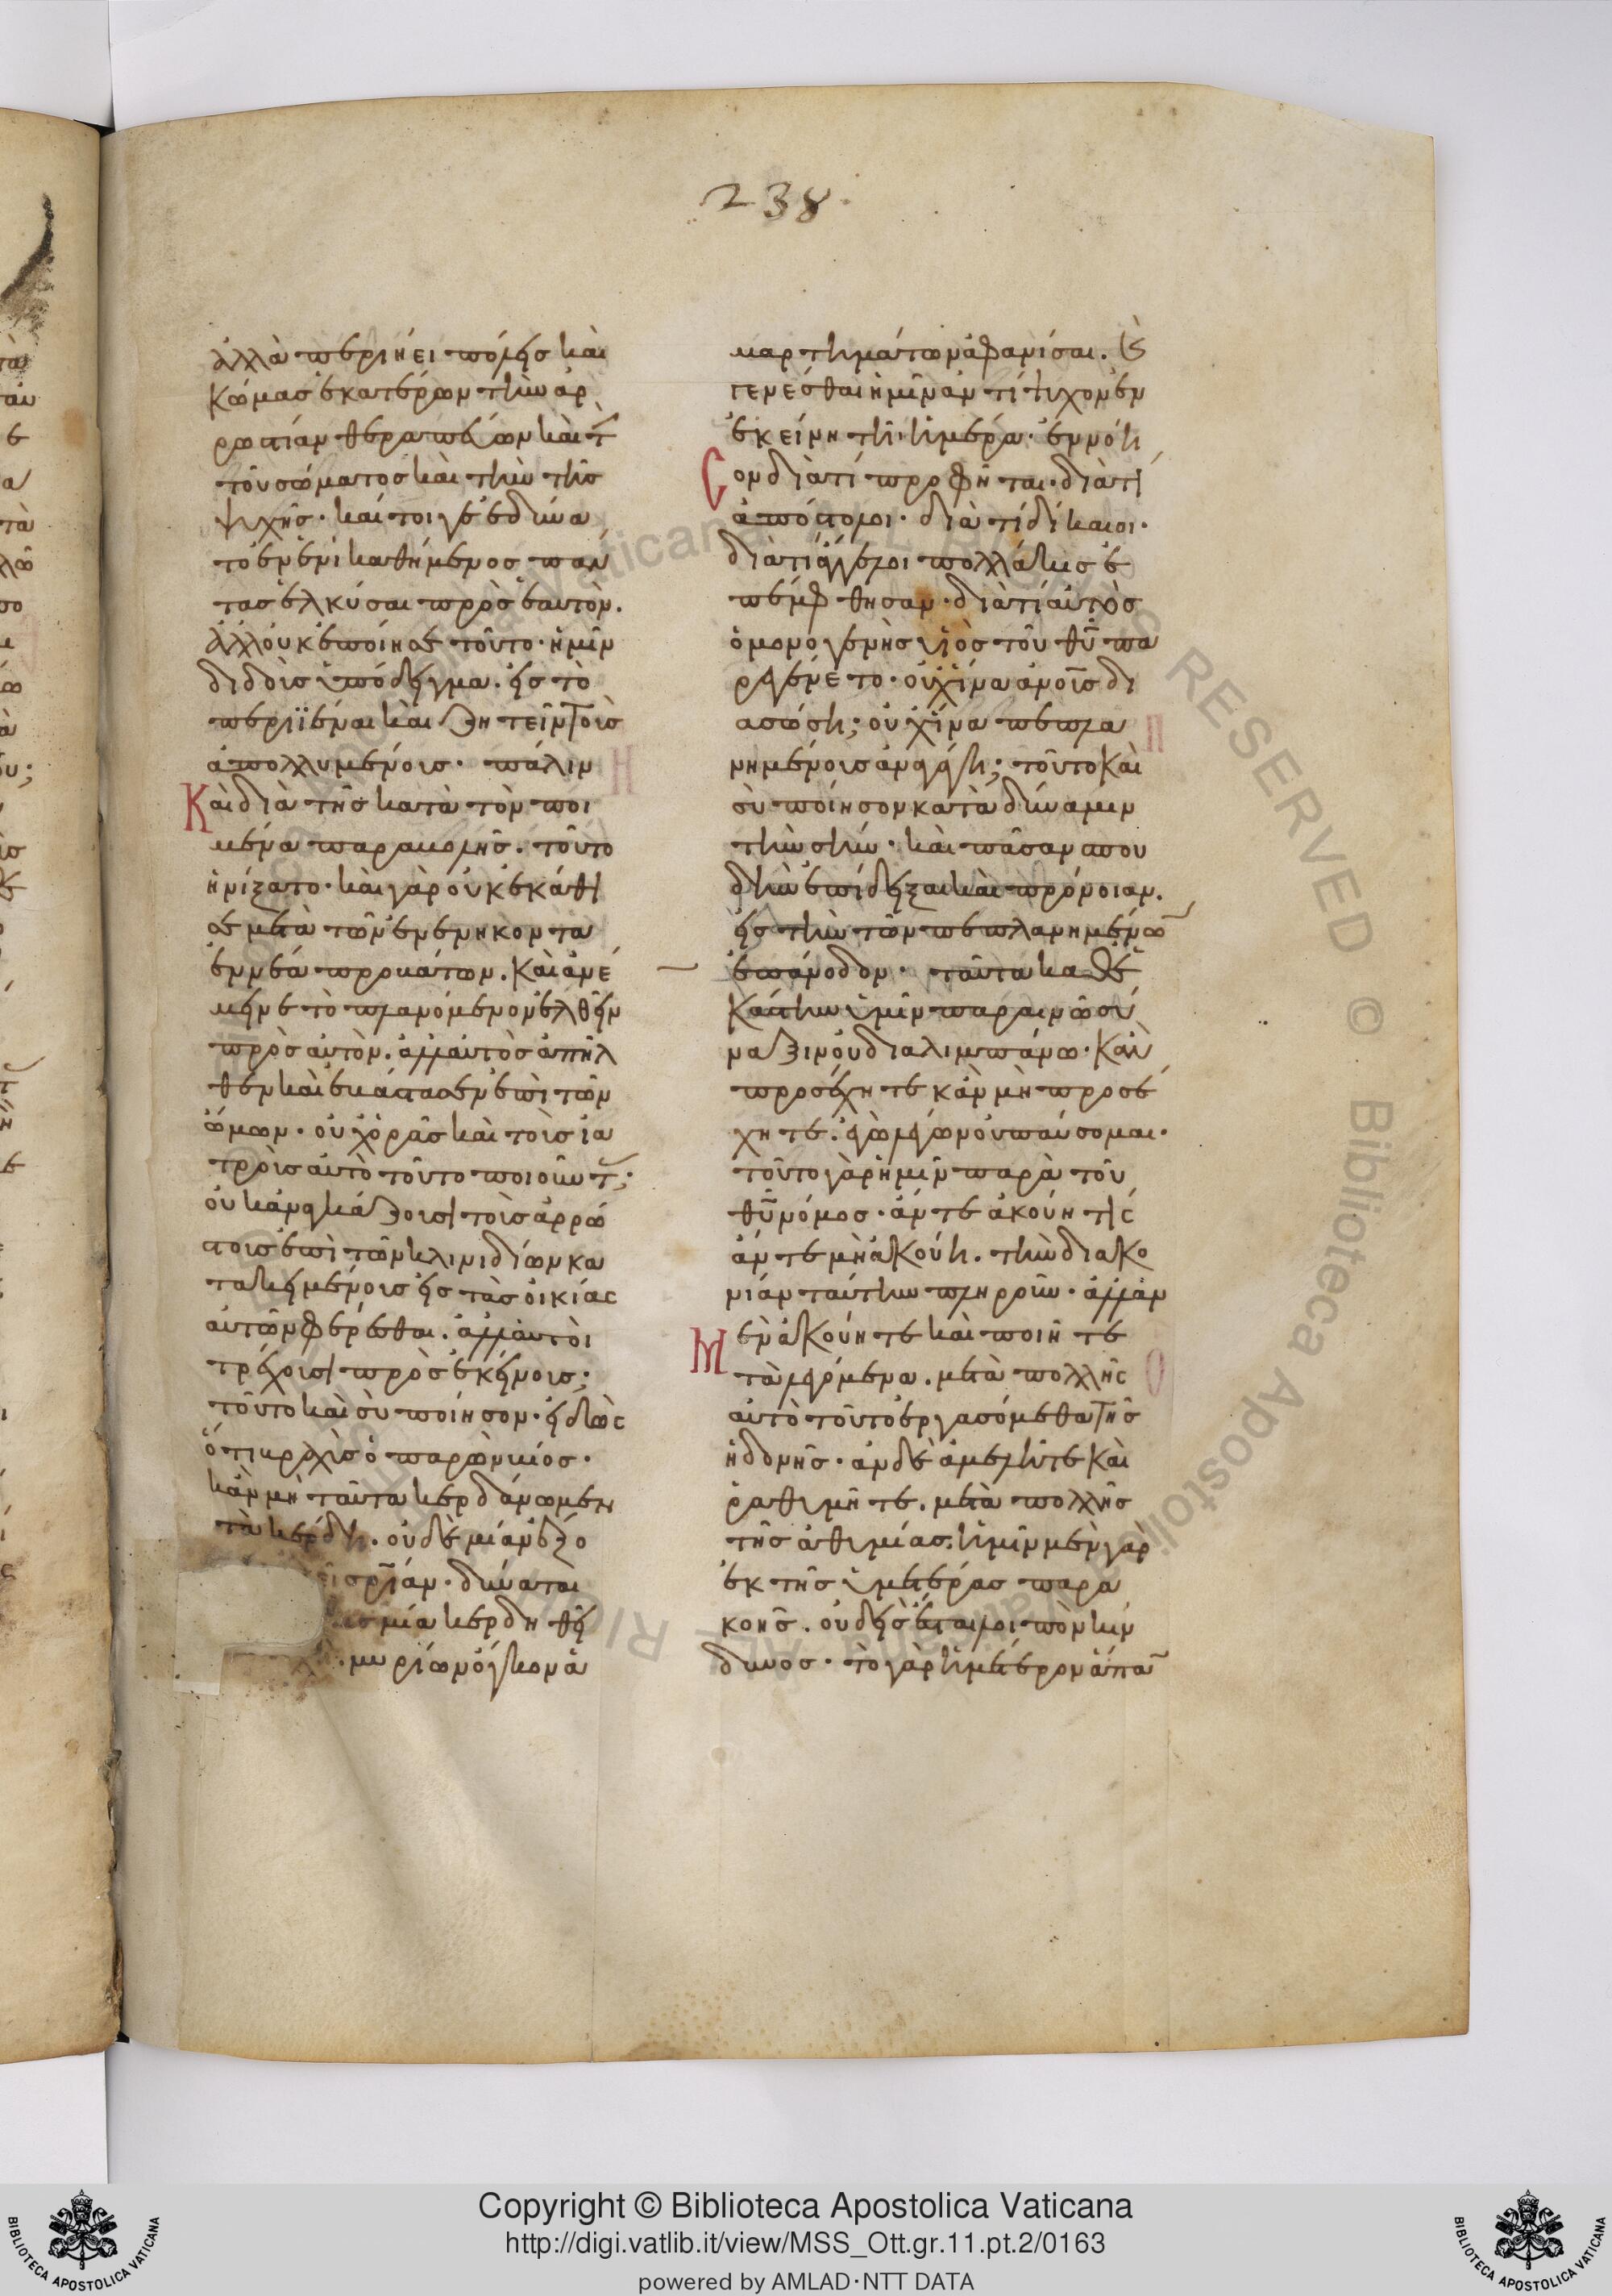 238
ἀλλὰ περιήει πόλεις καὶ
κώμας ἑκατέρων τὴν ἀρ
ρωστίαν θεραπεύων καὶ τ(ὴν)
τοῦ σώματος καὶ τὴν τῆς
ψυχῆς· καίτοιγε ἐδύνα
το ἐν ἑνὶ καθήμενος παν
τας ἑλκύσαι πρὸς ἑαυτόν.
ἀλλ' οὐκ ἐποίησε τοῦτο· ἡμῖν
διδοὺς ὑπόδειγμα. εἰς τὸ
περιϊέναι καὶ ζητεῖν τοὺς
ἀπολλυμένους. πάλιν
Καὶ διὰ τῆς κατὰ τὸν ποι
μένα παραβολῆς. τοῦτο
ἠνίξατο· καὶ γὰρ οὐκ ἐκάθι
σε μετὰ τῶν ἐνενήκοντα
ἐννέα προβάτων. Καὶ ἀνέ
μεινε τὸ πλανόμενον ἐλθεῖν
πρὸς αὐτόν. ἀλλ' αὐτὸς ἀπῆλ
θεν καὶ ἐβάστασεν ἐπὶ τῶν
ὤμων. οὐχ ὁρᾶς καὶ τοὺς ἰα
τροὺς αὐτὸ τοῦτο ποιοῦντ(ας);
οὐκ ἀναγκάζουσι τοὺς ἀρρώ
στους ἐπὶ τῶν κλινιδίων κα
τακειμένους εἰς τὰς οἰκίας
αὐτῶν φέρεσθαι. ἀλλ' αὐτοὶ
τρέχουσι πρὸς ἐκείνους·
τοῦτο καὶ σὺ ποίησον· εἰδὼς
ὅτι βραχὺς ὁ παρὼν βίος.
κἂν μὴ ταῦτα κερδάνωμεν
τὰ κέρδη. οὐδὲ μίαν ἕξο
σ(ωτη)ρίαν. δύναται
μία κερδηθεῖ
μυρίων ὄγκον ἁ
μαρτημάτων ἀφανίσαι. κ(αὶ)
γενέσθαι ἡμῖν ἀντίψυχον ἐν
ἐκείνη τῆ ἡμέρα. ἐννόη
Σον διὰ τί προφῆται· διὰ τί
ἀπόστολοι. διὰ τί δίκαιοι.
διὰ τί ἄγγελοι πολλάκις ἐ
πέμφθησαν. διὰ τί αὐτὸς
ὁ μονογενὴς υἱὸς τοῦ θ(εο)ῦ πα
ρεγένετο. οὐχ ἵνα αν(θρώπ)ους δι
ασώση; οὐχ ἵνα πεπλα
νημένους ἀναγάγη; τοῦτο καὶ
σὺ ποίησον κατὰ δύναμιν
τὴν σήν. καὶ πᾶσαν σπου
δὴν ἐπίδειξαι καὶ πρόνοιαν.
εἰς τὴν τῶν πεπλανημένω(ν)
ἐπάνοδον. ταῦτα καθ' ἑ
κάστην ὑμῖν παραινῶ σύ
ναξιν οὐ διαλιμπάνω. Κἂν
προσέχητε κἂν μὴ προσέ
χητε. ἐγὼ λέγων οὐ παύσομαι.
τοῦτο γὰρ ἡμῖν παρὰ τοῦ
θ(εο)ῦ νόμος. ἄν τε ἀκούη τίς
ἄν τε μὴ ἀκούη. τὴν διακο
νίαν ταύτην πληροῦν. ἀλλ' ἂν
Μὲν ἀκούητε καὶ ποιῆτε
τὰ λεγόμενα. μετὰ πολλῆς
αὐτὸ τοῦτο ἐργασόμεθα τῆς
ἡδονῆς. ἂν δὲ ἀμελῆτε καὶ
ῥαθυμῆτε. μετὰ πολλῆς
τῆς ἀθυμίας. ἡμῖν μὲν γὰρ
ἐκ τῆς ὑμετέρας παρα
κοῆς. οὐδεὶς ἔσται λοιπὸν κίν
δυνος. τὸ γὰρ ἡμέτερον ἅπα(ν)
Copyright © Biblioteca Apostolica Vaticana
http://digi.vatlib.it/view/MSS_Ott.gr.11.pt.2/0163
powered by AMLAD·NTT DATA
BIBLIOTECA APOSTOLICA VATICANA
BIBLIOTECA APOSTOLICA VATICANA